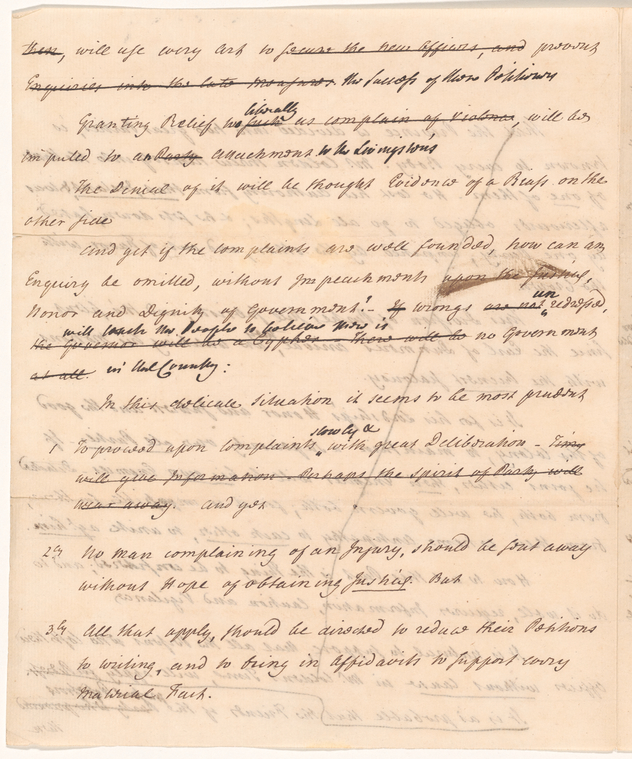 them, will use every Art to secure the new Officers, and prevent
Enquiries into the late measures the Success of these Petitions
liberally
Granting Relief to such as complain of Violence, will be
imputed to a Party attachment to the Livingstons
The Denial of it will be thought Evidence of a Biass on the
other side
And yet if the complaints are well founded, how can an
Enquiry be omitted, without Impeachments upon the Justice,
Honor and dignity of Government? - If wrongs are not redressed,
un
will teach the People to believe there is
the Governor will be a Cypher - there will be no Government
at all. in the Country:
In this delicate situation it seems to be most prudent
slowly &
1 To proceed upon complaints, with great Deliberation - Time
will give Information - Perhaps the Spirit of Party will
wear away. and yet
2ly No man complaining of an Injury, should be sent away
without Hope of obtaining Justice. But
3ly All that apply, should be directed to reduce their Petitions
to writing, and to bring in Affidavits to support every
material Fact.